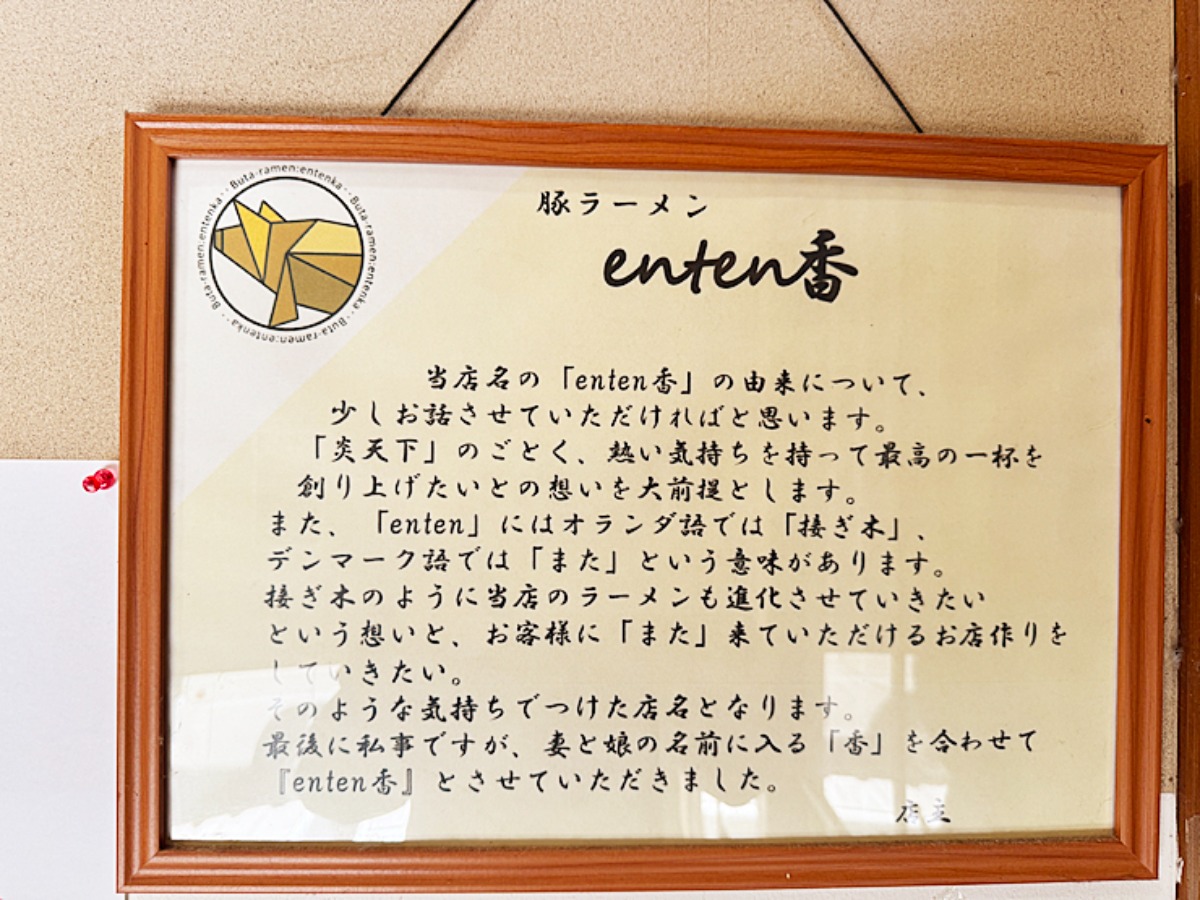 Buta-ramen:entenka・・Buta-ramen:entenka・・Buta-ramen:entenka・・Buta-ramen:entenka・・
豚ラーメン
enten香
当店名の「enten香」の由来について、
少しお話させていただければと思います。
「炎天下」のごとく、熱い気持ちを持って最高の一杯を
創り上げたいとの想いを大前提とします。
また、「enten」にはオランダ語では「接ぎ木」、
デンマーク語では「また」という意味があります。
接ぎ木のように当店のラーメンも進化させていきたい
という想いと、お客様に「また」来ていただけるお店作りを
していきたい。
そのような気持ちでつけた店名となります。
最後に私事ですが、妻と娘の名前に入る「香」を合わせて
『enten香』とさせていただきました。
店主